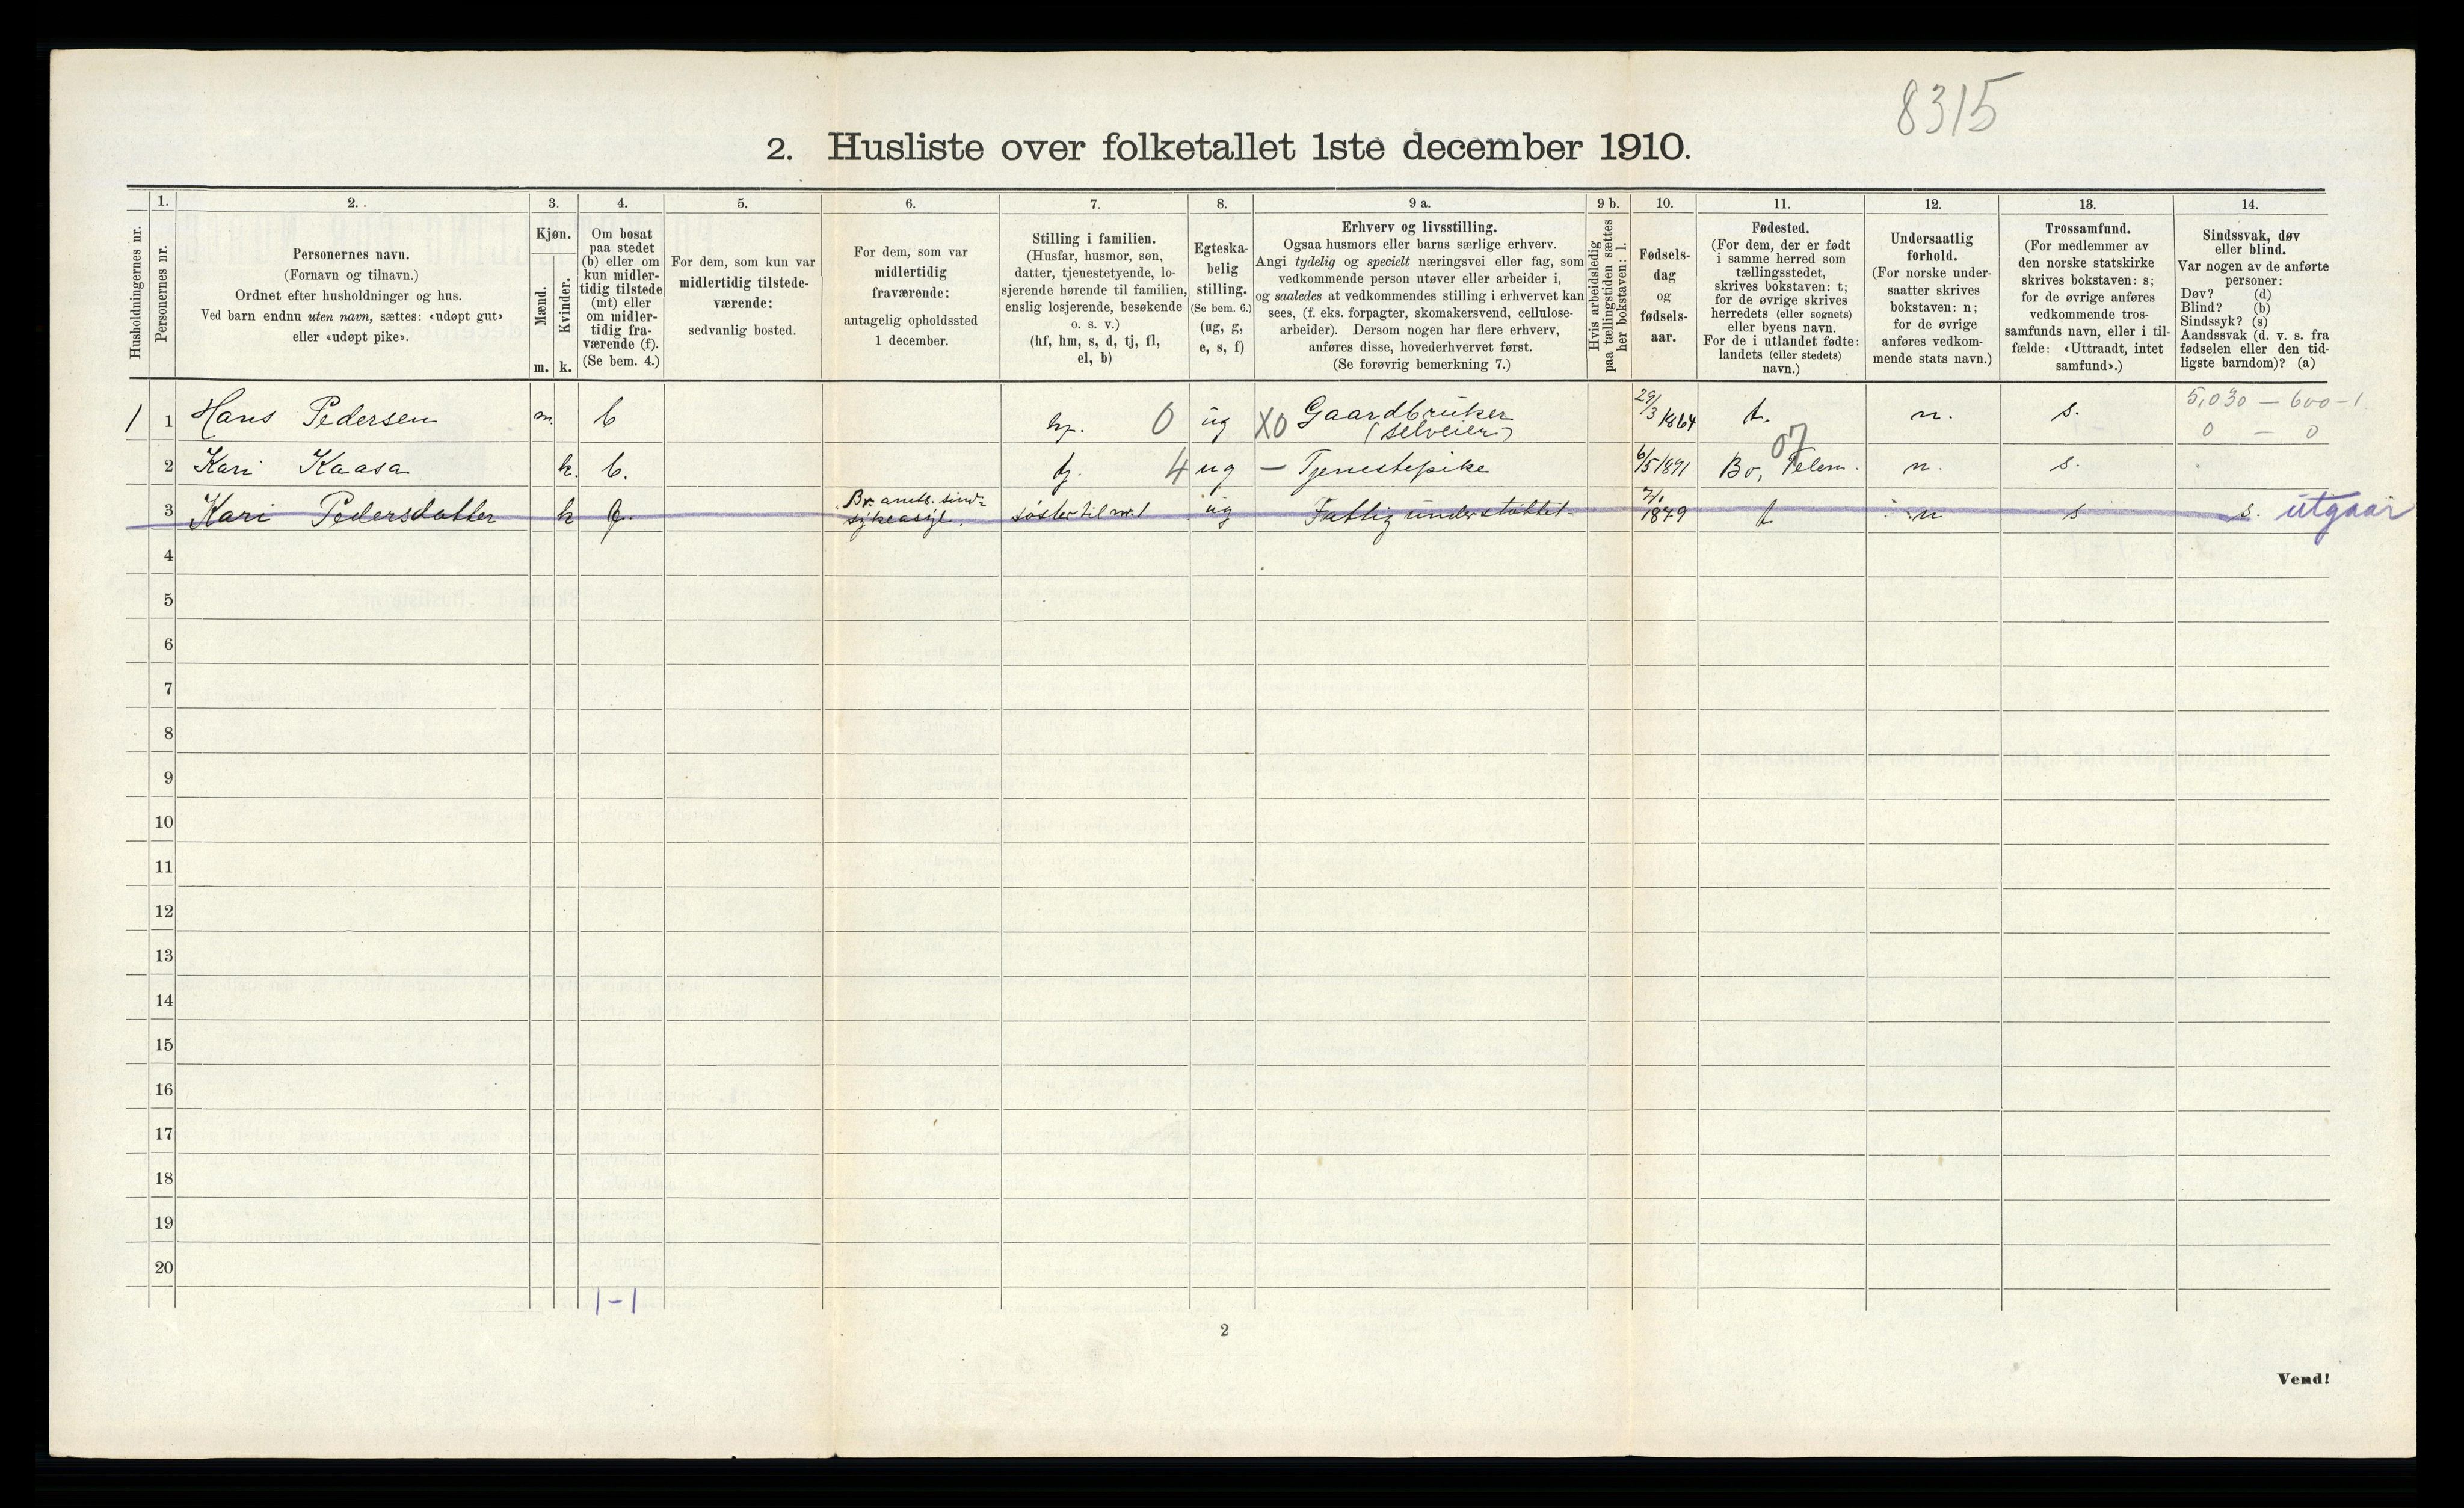 8315
2. Husliste over folketallet 1ste december 1910.
1. 2. 3. 4. 5. 6. 7. 8. 9 a. 9 b. 10. 11. 12. 13. 14.
Husholdningernes nr.
Personernes nr.
Personernes navn.
(Fornavn og tilnavn.)
Ordnet efter husholdninger og hus.
Ved barn endnu uten navn, sættes: «udøpt gut»
eller «udøpt pike».
Kjøn.
Mænd.
Kvinder.
m. k.
Om bosat
paa stedet
(b) eller om
kun midler-
tidig tilstede
(mt) eller
om midler-
tidig fra-
værende (f).
(Se bem. 4.)
For dem, som kun var
midlertidig tilstede-
værende:
sedvanlig bosted.
For dem, som var
midlertidig
fraværende:
antagelig opholdssted
1 december.
Stilling i familien.
(Husfar, husmor, søn,
datter, tjenestetyende, lo-
sjerende hørende til familien,
enslig losjerende, besøkende
o. s. v.)
(hf, hm, s, d, tj, fl,
el, b)
Egteska-
belig
stilling.
(Se bem. 6.)
(ug, g,
e, s, f)
Erhverv og livsstilling.
Ogsaa husmors eller barns særlige erhverv.
Angi tydelig og specielt næringsvei eller fag, som
vedkommende person utøver eller arbeider i,
og saaledes at vedkommendes stilling i erhvervet kan
sees, (f. eks. forpagter, skomakersvend, cellulose-
arbeider). Dersom nogen har flere erhverv,
anføres disse, hovederhvervet først.
(Se forøvrig bemerkning 7.)
Hvis arbeidsledig
paa tællingstiden sættes
her bokstaven: l.
Fødsels-
dag
og
fødsels-
aar.
Fødested.
(For dem, der er født
i samme herred som
tællingsstedet,
skrives bokstaven: t;
for de øvrige skrives
herredets (eller sognets)
eller byens navn.
For de i utlandet fødte:
landets (eller stedets)
navn.)
Undersaatlig
forhold.
(For norske under-
saatter skrives
bokstaven: n;
for de øvrige
anføres vedkom-
mende stats navn.)
Trossamfund.
(For medlemmer av
den norske statskirke
skrives bokstaven: s;
for de øvrige anføres
vedkommende tros-
samfunds navn, eller i til-
fælde: «Uttraadt, intet
samfund».)
Sindssvak, døv
eller blind.
Var nogen av de anførte
personer:
Døv? (d)
Blind? (b)
Sindssyk? (s)
Aandssvak (d. v. s. fra
fødselen eller den tid-
ligste barndom)? (a)
1 1 Hans Pedersen m. b hf. 0 ug X0 Gaardbruker (selveier) 29/3 1864 t. n. s. 5,030 – 600 – 1
0 – 0
07
2 Kari Kaasa k. b. tj. 4 ug – Tjenestepike 6/5 1891 Bø, Telem. n. s.
3 Kari Pedersdatter k f. Br. amts. sind- sykeasyl. søster til nr. 1 ug Fattigunderstøttet 7/1 1849 t n s s. utgaar
4
5
6
7
8
9
10
11
12
13
14
15
16
17
18
19
20
1 – 1
2
Vend!